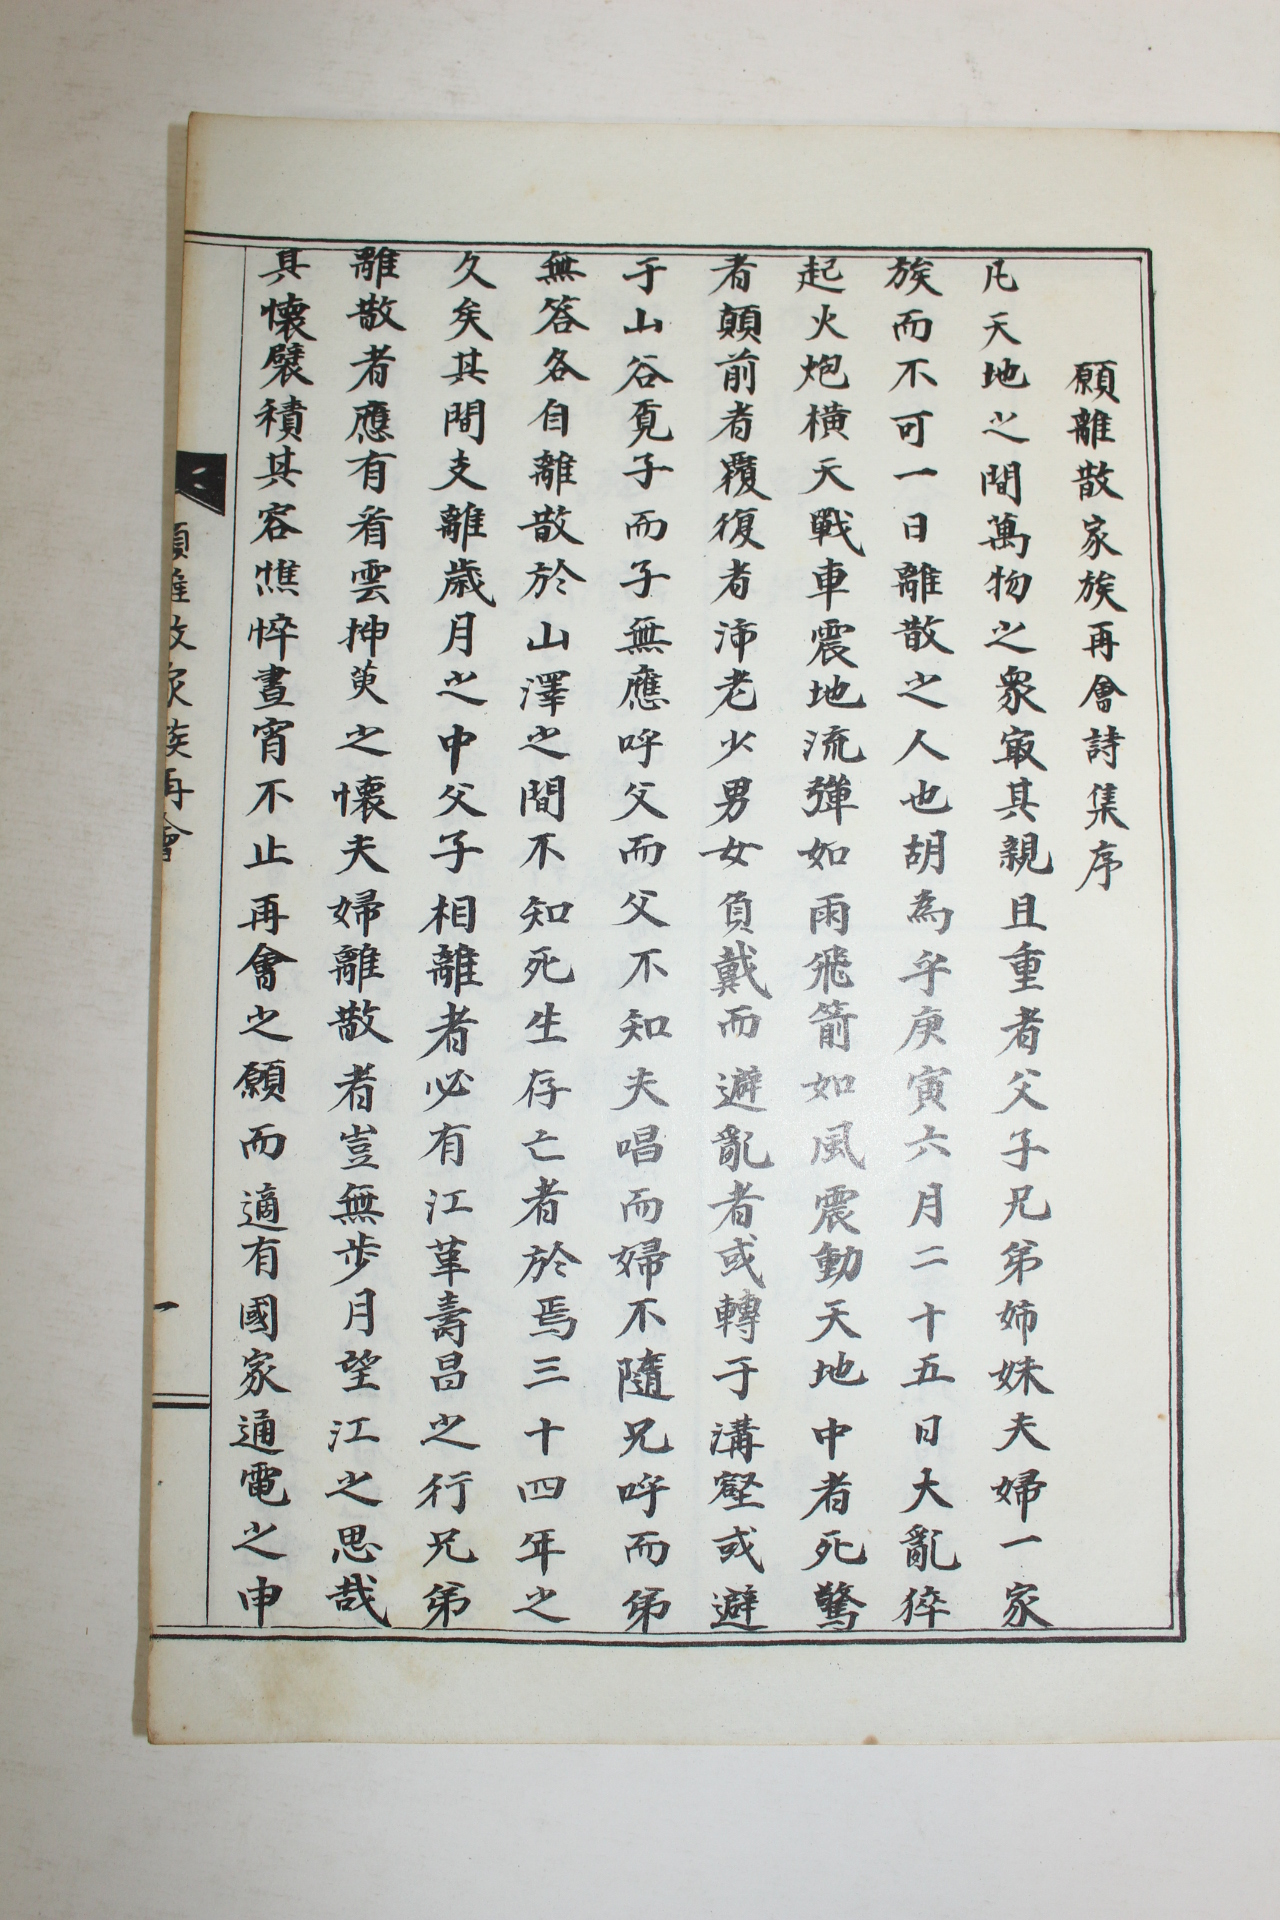 願離散家族再會詩集序
凡天地之間萬物之衆㝡其親且重者父子兄弟姉妹夫婦一家
族而不可一日離散之人也胡為乎庚寅六月二十五日大亂猝
起火炮橫天戰車震地流彈如雨飛箭如風震動天地中者死驚
者顛前者覆復者沛老少男女負戴而避亂者或轉于溝壑或避
于山谷覔子而子無應呼父而父不知夫唱而婦不隨兄呼而弟
無答各自離散於山澤之間不知死生存亡者於焉三十四年之
久矣其間支離歲月之中父子相離者必有江革壽昌之行兄弟
離散者應有看雲揷萸之懷夫婦離散者豈無步月望江之思哉
其懷襞積其容憔悴晝宵不止再會之願而適有國家通電之申
願離散家族再會
一